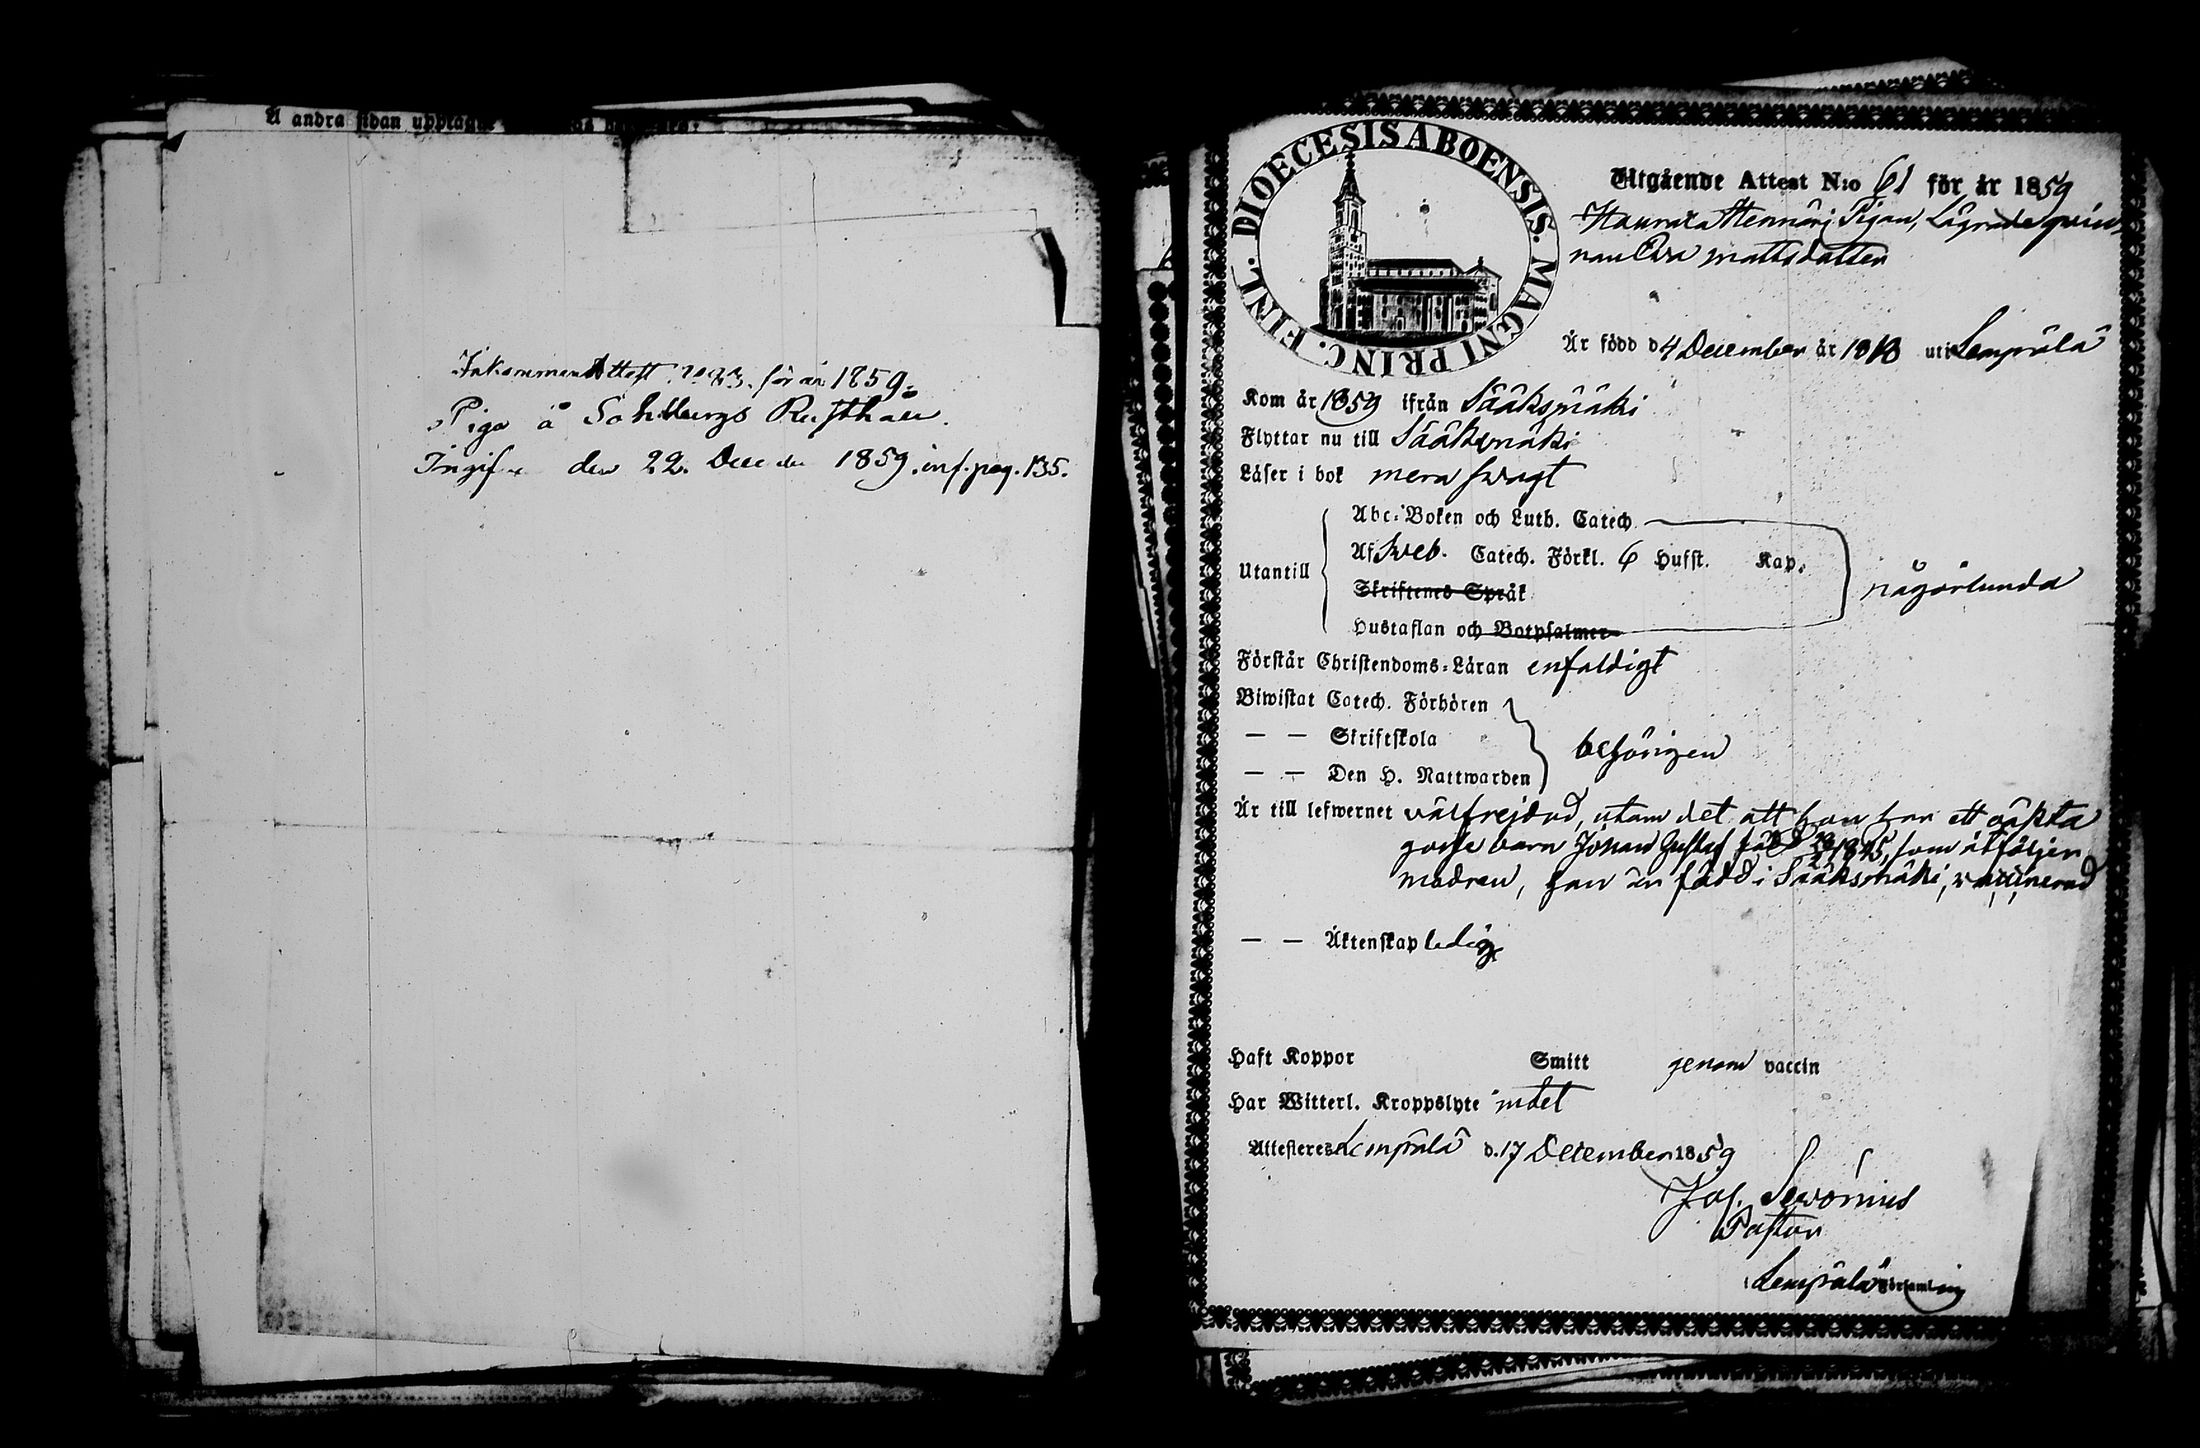 Å andra sidan upptages
Inkommen Attest No 83. för år 1859.
Piga å Sohlbergs Rusthåll.
Ingifv. den 22. December 1859. inf. pag. 135.
DIOECESIS ABOENSIS. MAGNI PRINC. FINL.
Utgående Attest N:o 61 för år 1859
Pigan, Lägrade qvin-
nan Eva Mattsdotter
Är född d 4 December år 1818 uti Lempälä
Kom år 1859 ifrån Sääksmäki
Flyttar nu till Sääksmäki
Läser i bok mera svagt
Abc-Boken och Luth. Catech.
Af Sveb. Catech. Förkl. 6 Hufst. Kap.
Utantill
någorlunda
Skriftenes Språk
Hustaflan och Botpsalmer
Förstår Christendoms-Läran enfaldigt
Biwistat Catech. Förhören
— — Skriftskola
behörigen
— — Den H. Nattwarden
Är till lefwernet välfrejdad, utom det att hon har ett oäkta
gosse barn Johan Gustaf född 1845, som åtföljer
modren, han är född i Sääksmäki, vaccinerad
— — Äktenskap ledig
Haft Koppor Smitt genom vaccin
Har Witterl. Kroppslyte intet
Attesteres Lempälä d. 17 December 1859
Jos. Servonius
Pastor
i Lempälä Församling